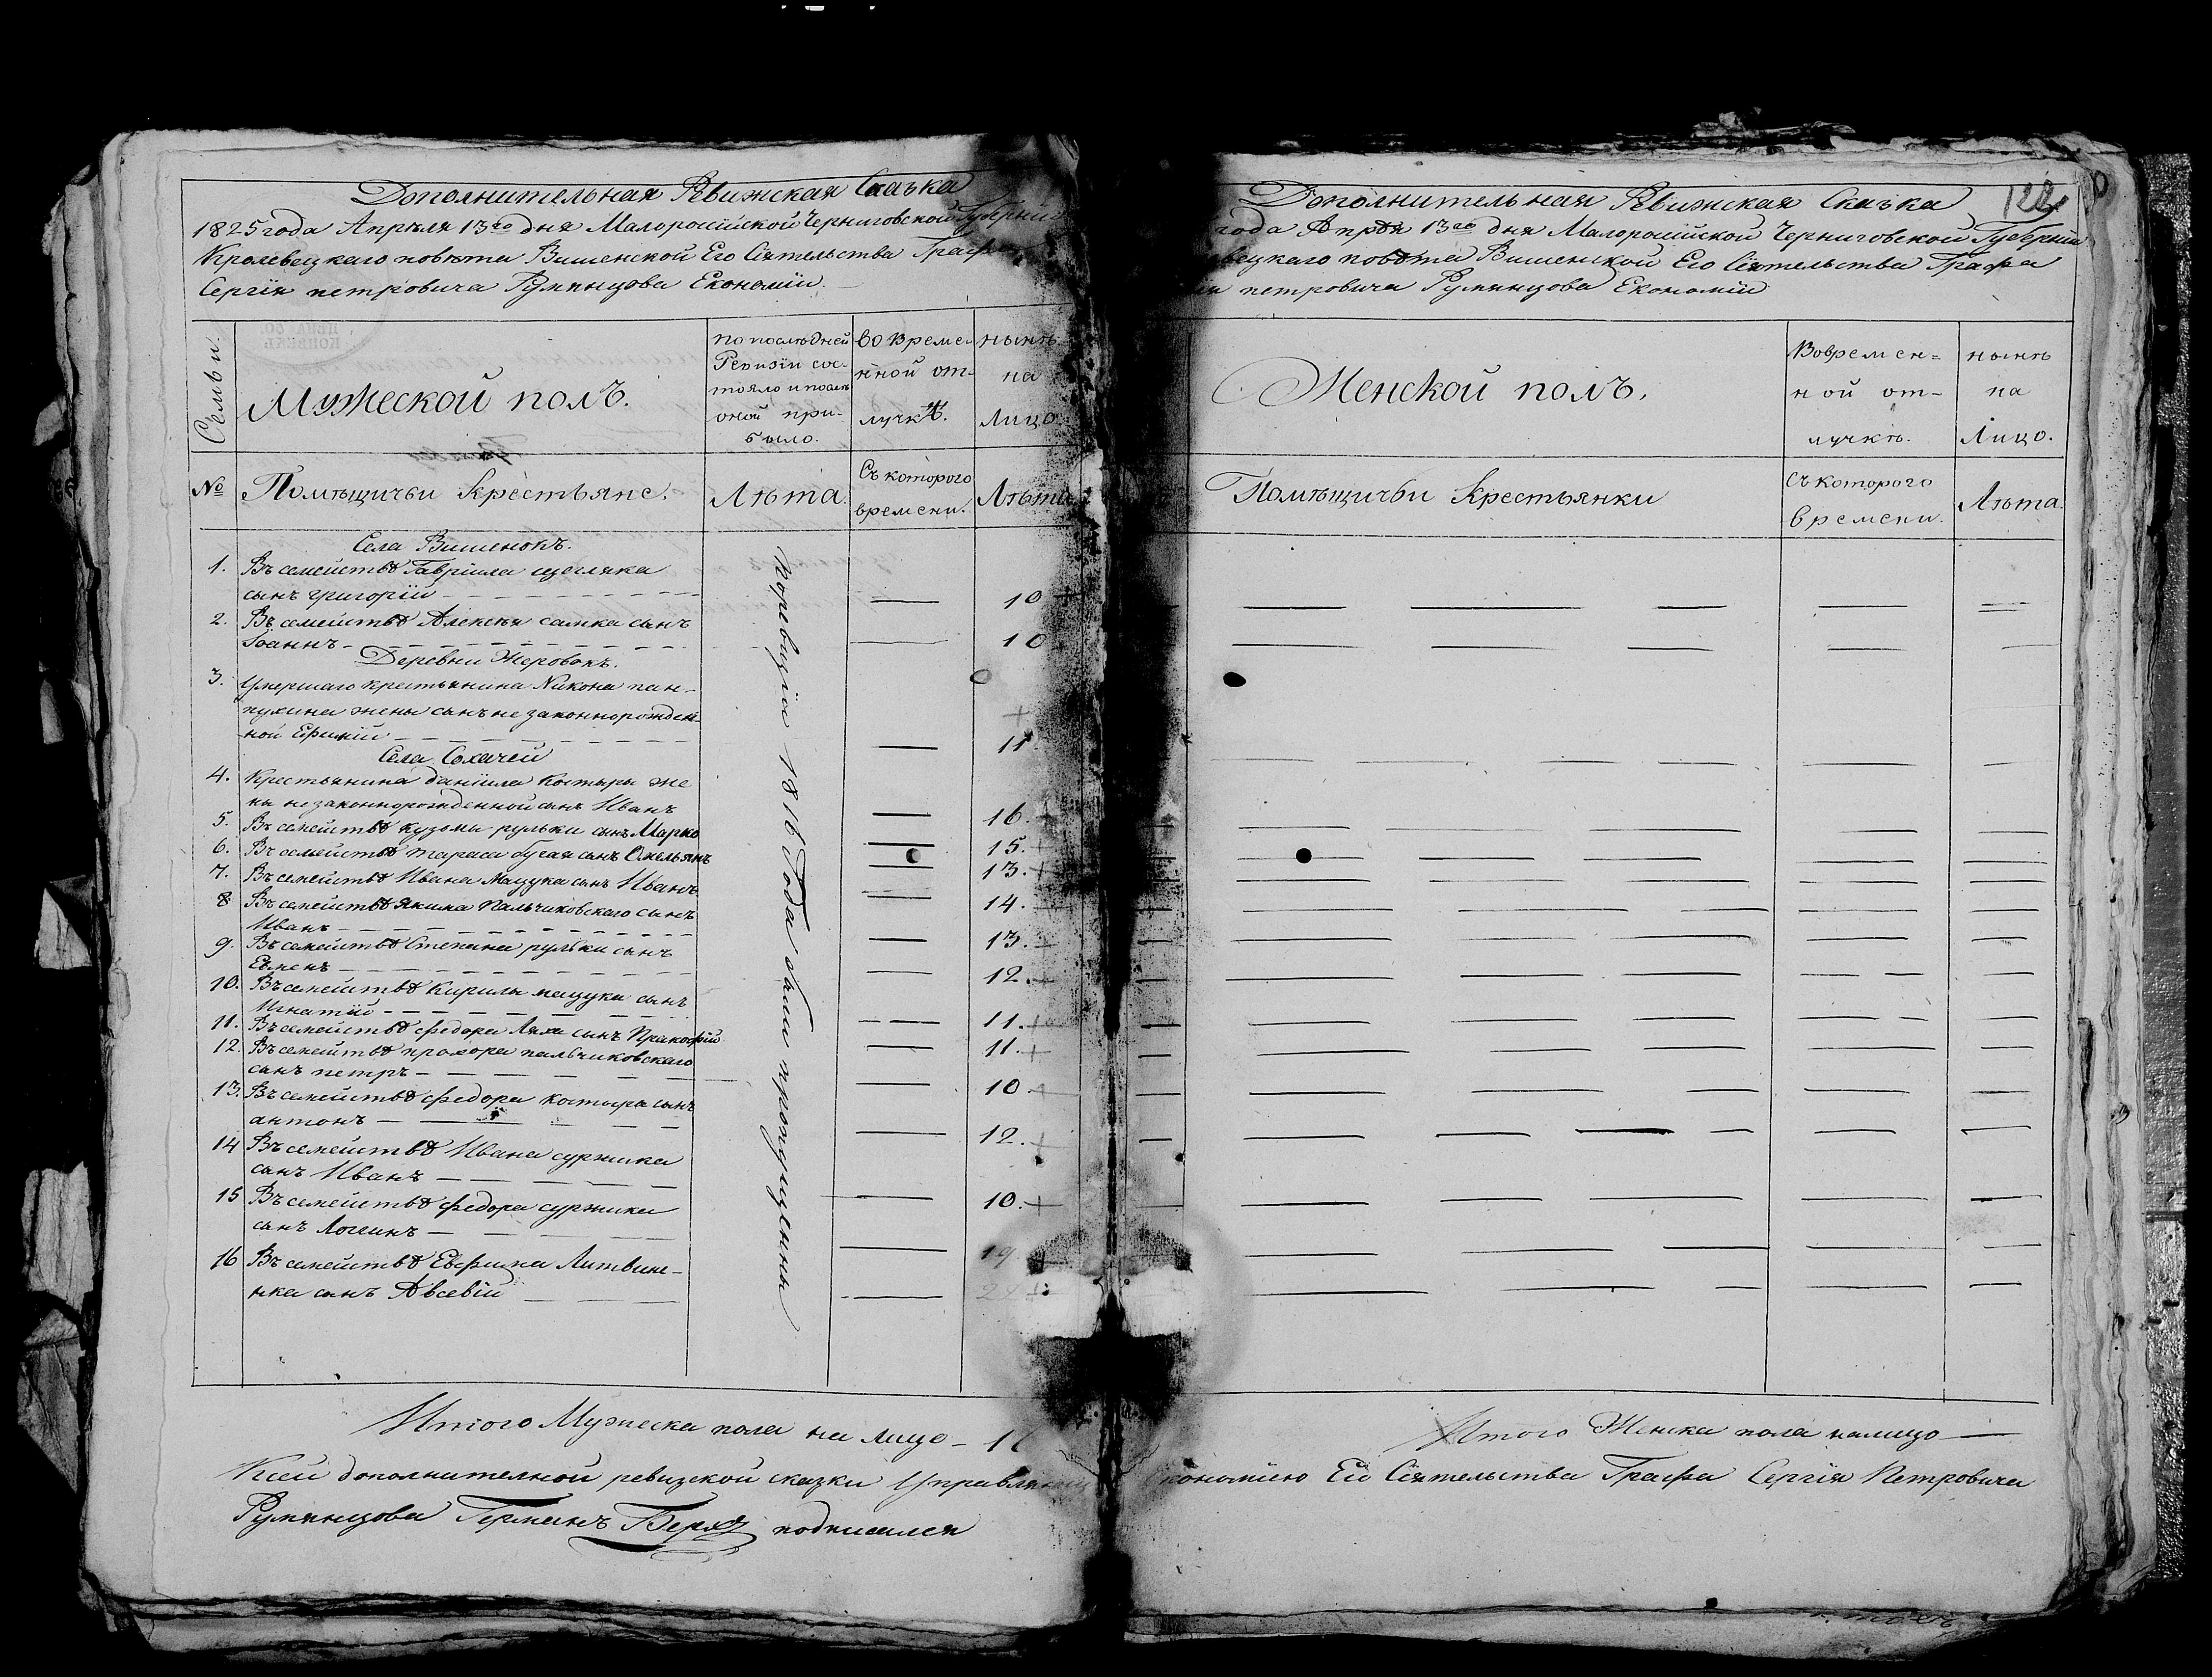 Дополнительная Ревижская Сказка
1825 года Апрѣля 13го дня Малоросійской Черниговской Губерніи
Кролевецкаго повѣта Вишенской Его Сіятельства Графа
Сергія петровича Румянцова Економіи
Семьи.
Мужеской полъ.
по послѣдней Ревизіи сос-
тояло и послѣ
оной при-
было.
во време-
нной от-
лучкѣ.
нынѣ
на
Лицо.
№
Помѣщичьи крестьяне.
Лѣта.
Съ котораго
времени.
Лѣта
Села Вишенокъ.
1. Въ семействѣ Гавріила
сынъ григорій 10
2. Въ семействѣ Алексѣя самка сынъ
Іоаннъ 10
Деревни Жеровокъ.
3. Умершаго крестьянина Никона пан-
жены сынъ не законнорожден-
ной 11
Села Сохачей
4. Крестьянина даніила Костыры же
ны не законнорожденной сынъ Иванъ 16.
5. Въ семействѣ кузьмы рульки сынъ Марко 15.
6. Въ семействѣ тараса бугая сынъ Омельянъ 13.
7. Въ семействѣ Ивана мацука сынъ Иванъ 14.
8. Въ семействѣ якима Пальчиковскаго сынъ
Иванъ 13.
9. Въ семействѣ Степана рульки сынъ
Евменъ 12.
10. Въ семействѣ Кирилы мацука сынъ
Игнатій 11.
11. Въ семействѣ федора Ляха сынъ Пракофій 11.
12. Въ семействѣ прохора пальчиковскаго
сынъ петръ 10
13. Въ семействѣ федора костыры сынъ
антонъ 12.
14 Въ семействѣ Ивана суржика
сынъ Иванъ 10.
15 Въ семействѣ федора суржика
сынъ Логинъ 19
16 Въ семействѣ Евфима Литвине-
нка сынъ Авсевій
по ревизіи 1816 Года были пропущены
Итого Мужеска пола на лицо - 1
Къ сей дополнителной ревизской сказки Управляющ
Румянцова Германъ Берхъ подписался
122
Дополнительная Ревижская Сказка
года Апрѣля 13го дня Малоросійской Черниговской Губерніи
вецкаго повѣта Вишенской Его Сіятельства Графа
петровича Румянцова Економіи
Женской полъ.
Вовремен-
ной от-
лучкѣ.
нынѣ
на
Лицо.
Помѣщичьи крестьянки
Съ котораго
времени.
Лѣта.
Итого Женска пола налицо
кономіею Его Сіятельства Графа Сергія Петровича